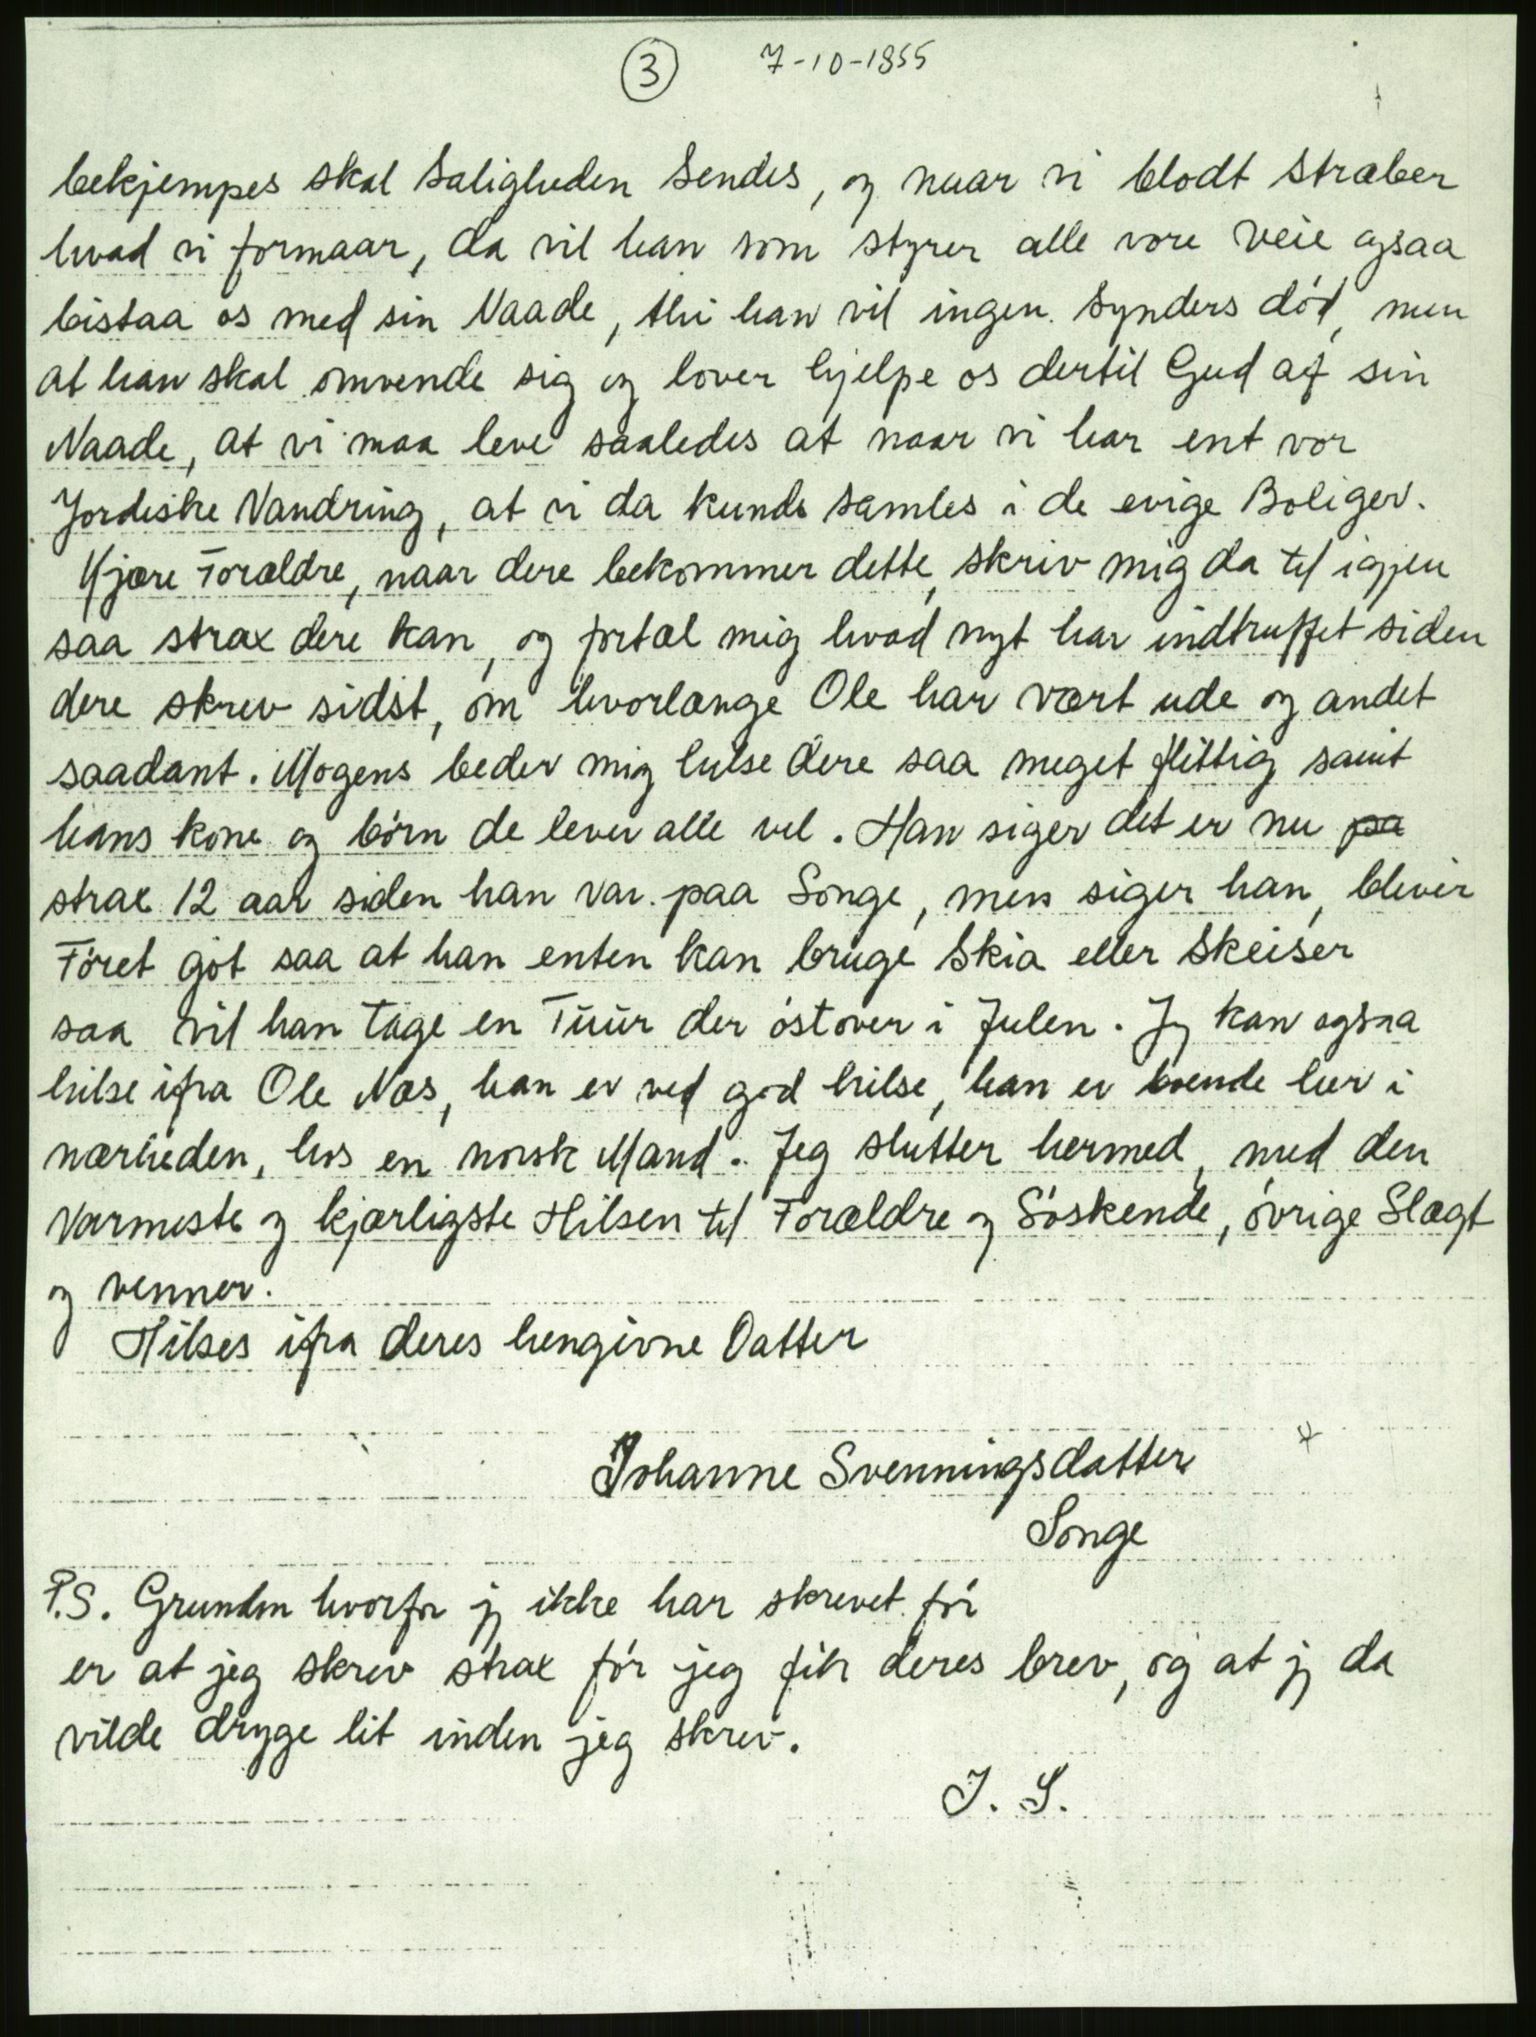 3 7-10-1855
bekjempes skal Saligheden Sendes, og naar vi blodt Stræber
hvad vi formaar, da vil han som styrer alle vore Veie ogsaa
bistaa os med sin Naade, thi han vil ingen Synders död, men
at han skal omvende sig og lover hjelpe os dertil Gud af sin
Naade, at vi maa leve saaledes at naar vi har ent vor
Jordiske Vandring, at vi da kunde samles i de evige Boliger.
Kjære Forældre, naar dere bekommer dette, skriv mig da til igjen
saa strax dere kan, og fortæl mig hvad nyt har indtruffet siden
dere skrev sidst, om hvorlænge Ole har vært ude og andet
saadant. Mogens beder mig hilse dere saa meget flittig samt
hans kone og börn de lever alle vel. Han siger det er nu pa
strax 12 aar siden han var paa Songe, men siger han, blever
Föret göt saa at han enten kan bruge Skia eller Skeiser
saa vil han tage en Tuur der östover i Julen. Jg kan ogsaa
hilse ifra Ole Næs, han er ved god hilse, han er boende her i
nærheden, hos en norsk Mand. Jeg slutter hermed, med den
Varmeste og kjærligste Hilsen til Forældre og Söskende, övrige Slægt
og venner.
Hilses ifra deres hengivne Datter
Johanne Svenningsdatter
Songe
P.S. Grunden hvorfor jg ikke har skrevet för
er at jeg skrev strax för jeg fik deres brev, og at jg da
vilde dryge lit inden jeg skrev.
J. S.